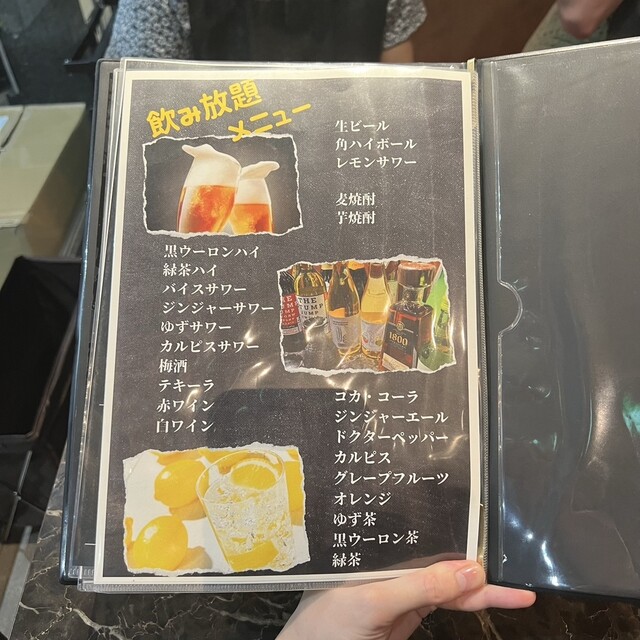 飲み放題
メニュー
生ビール
角ハイボール
レモンサワー
麦焼酎
芋焼酎
黒ウーロンハイ
緑茶ハイ
バイスサワー
ジンジャーサワー
ゆずサワー
カルピスサワー
梅酒
テキーラ
赤ワイン
白ワイン
THE
THE
1800
コカ・コーラ
ジンジャーエール
ドクターペッパー
カルピス
グレープフルーツ
オレンジ
ゆず茶
黒ウーロン茶
緑茶